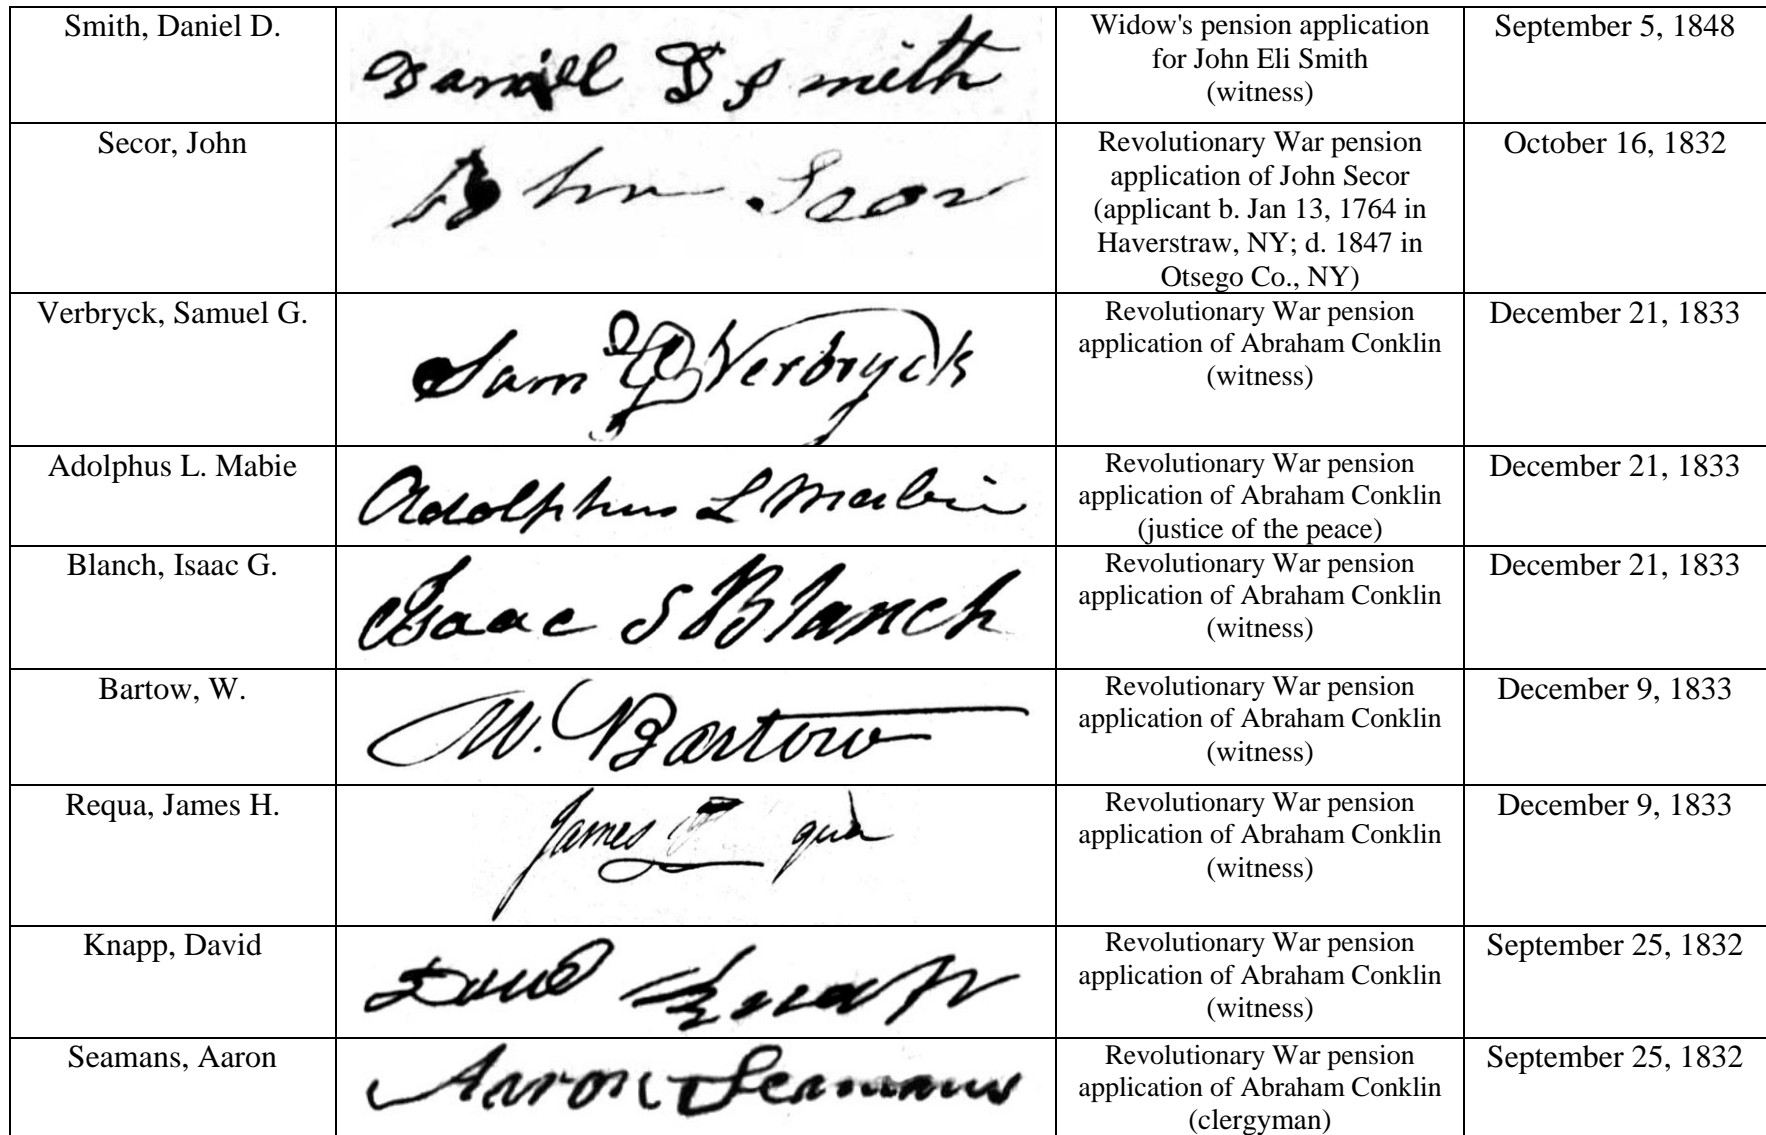 Smith, Daniel D.
Daniel D Smith
Widow's pension application
for John Eli Smith
(witness)
September 5, 1848
Secor, John
John Secor
Revolutionary War pension
application of John Secor
(applicant b. Jan 13, 1764 in
Haverstraw, NY; d. 1847 in
Otsego Co., NY)
October 16, 1832
Verbryck, Samuel G.
Sam G Verbryck
Revolutionary War pension
application of Abraham Conklin
(witness)
December 21, 1833
Adolphus L. Mabie
Adolphus L Mabie
Revolutionary War pension
application of Abraham Conklin
(justice of the peace)
December 21, 1833
Blanch, Isaac G.
Isaac S Blanch
Revolutionary War pension
application of Abraham Conklin
(witness)
December 21, 1833
Bartow, W.
W. Bartow
Revolutionary War pension
application of Abraham Conklin
(witness)
December 9, 1833
Requa, James H.
James qua
Revolutionary War pension
application of Abraham Conklin
(witness)
December 9, 1833
Knapp, David
David Knapp
Revolutionary War pension
application of Abraham Conklin
(witness)
September 25, 1832
Seamans, Aaron
Aaron Seamans
Revolutionary War pension
application of Abraham Conklin
(clergyman)
September 25, 1832